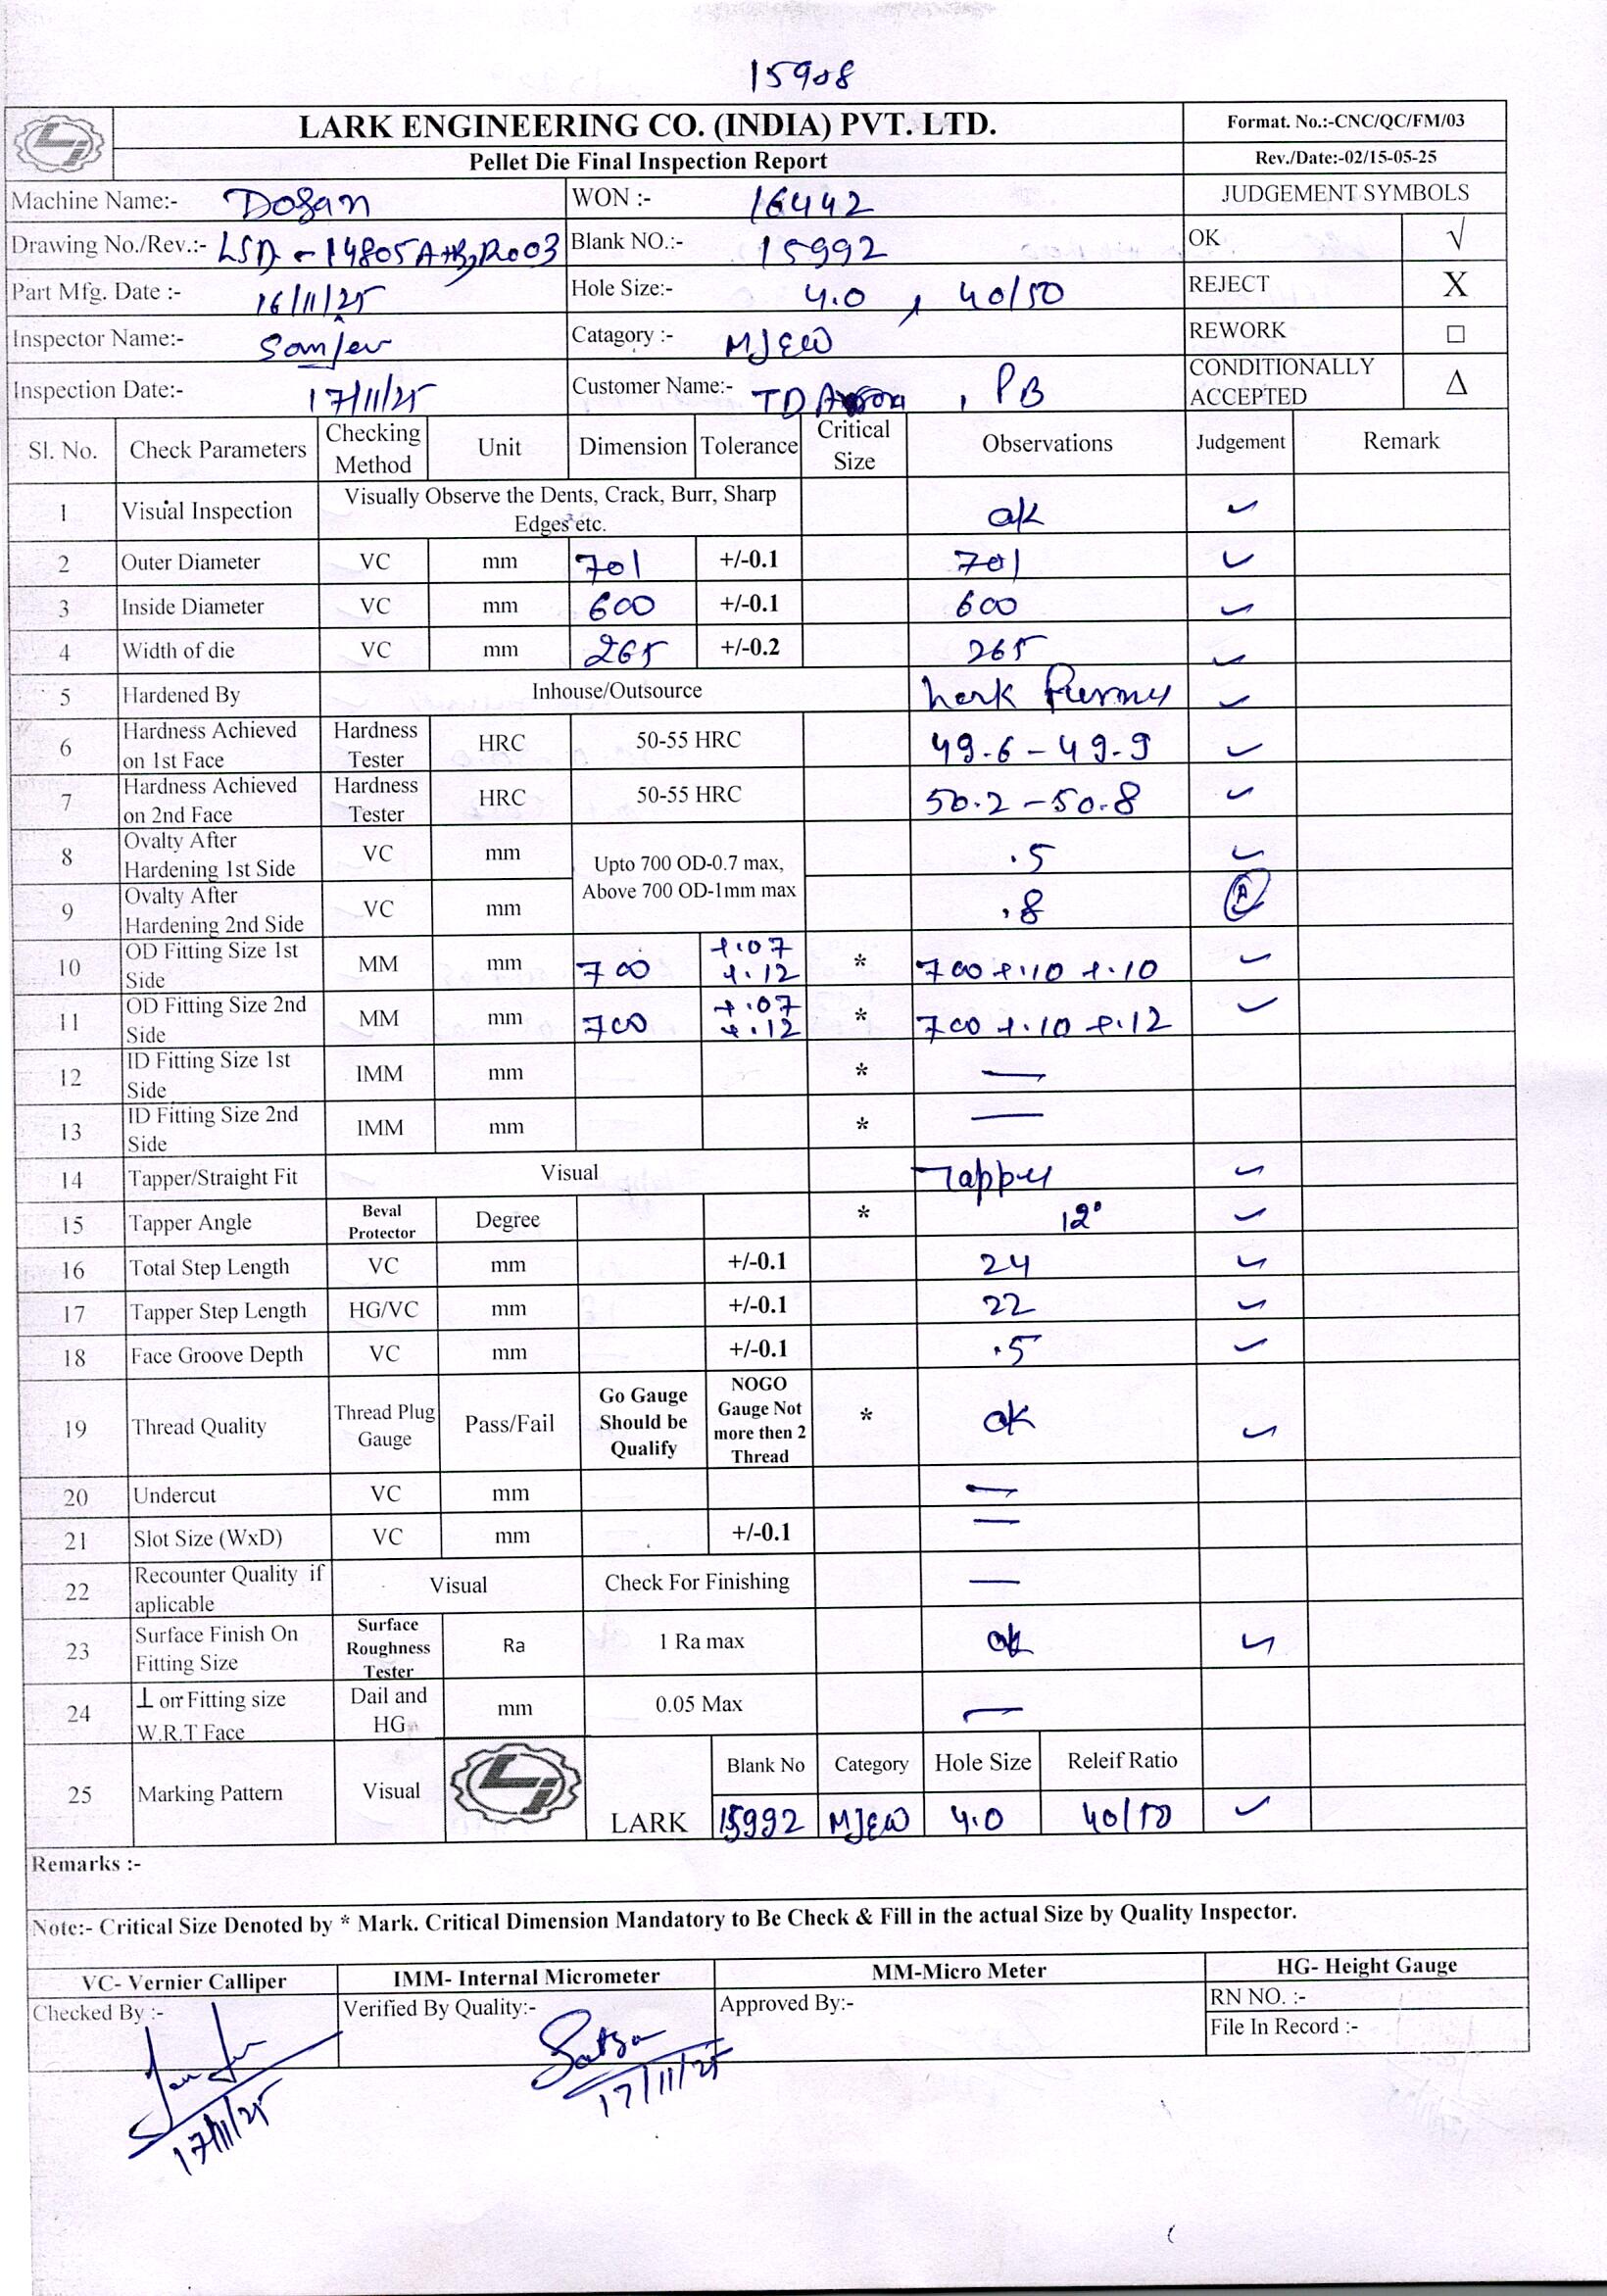 15908
LARK ENGINEERING CO. (INDIA) PVT. LTD.
Format. No.:-CNC/QC/FM/03
Pellet Die Final Inspection Report
Rev./Date:-02/15-05-25
Machine Name:- Dogan WON :- 16442 JUDGEMENT SYMBOLS
Drawing No./Rev.:- LSD-14805A+B,R003 Blank NO.:- 15992 OK √
Part Mfg. Date :- 16/11/25 Hole Size:- 4.0 , 40/50 REJECT X
Inspector Name:- Sanjev Catagory :- MJEW REWORK □
Inspection Date:- 17/11/25 Customer Name:- TD , PB CONDITIONALLY ACCEPTED Δ
Sl. No. Check Parameters Checking Method Unit Dimension Tolerance Critical Size Observations Judgement Remark
1 Visual Inspection Visually Observe the Dents, Crack, Burr, Sharp Edges etc. ok ✓
2 Outer Diameter VC mm 701 +/-0.1 701 ✓
3 Inside Diameter VC mm 600 +/-0.1 600 ✓
4 Width of die VC mm 265 +/-0.2 265 ✓
5 Hardened By Inhouse/Outsource Lark ✓
6 Hardness Achieved on 1st Face Hardness Tester HRC 50-55 HRC 49.6 - 49.9 ✓
7 Hardness Achieved on 2nd Face Hardness Tester HRC 50-55 HRC 50.2 - 50.8 ✓
8 Ovalty After Hardening 1st Side VC mm Upto 700 OD-0.7 max, Above 700 OD-1mm max .5 ✓
9 Ovalty After Hardening 2nd Side VC mm .8
10 OD Fitting Size 1st Side MM mm 700 +.07 +.12 * 700 +.10 +.10 ✓
11 OD Fitting Size 2nd Side MM mm 700 +.07 +.12 * 700 +.10 +.12 ✓
12 ID Fitting Size 1st Side IMM mm * —
13 ID Fitting Size 2nd Side IMM mm * —
14 Tapper/Straight Fit Visual Tapper ✓
15 Tapper Angle Beval Protector Degree * 12° ✓
16 Total Step Length VC mm +/-0.1 24 ✓
17 Tapper Step Length HG/VC mm +/-0.1 22 ✓
18 Face Groove Depth VC mm +/-0.1 .5 ✓
19 Thread Quality Thread Plug Gauge Pass/Fail Go Gauge Should be Qualify NOGO Gauge Not more then 2 Thread * ok ✓
20 Undercut VC mm —
21 Slot Size (WxD) VC mm +/-0.1 —
22 Recounter Quality if aplicable Visual Check For Finishing —
23 Surface Finish On Fitting Size Surface Roughness Tester Ra 1 Ra max ok ✓
24 ⊥ on Fitting size W.R.T Face Dail and HG mm 0.05 Max —
25 Marking Pattern Visual LARK Blank No Category Hole Size Releif Ratio
15992 MJEW 4.0 40/50 ✓
Remarks :-
Note:- Critical Size Denoted by * Mark. Critical Dimension Mandatory to Be Check & Fill in the actual Size by Quality Inspector.
VC- Vernier Calliper IMM- Internal Micrometer MM-Micro Meter HG- Height Gauge
Checked By :- Verified By Quality:- Approved By:- RN NO. :-
File In Record :-
17/11/25
17/11/25